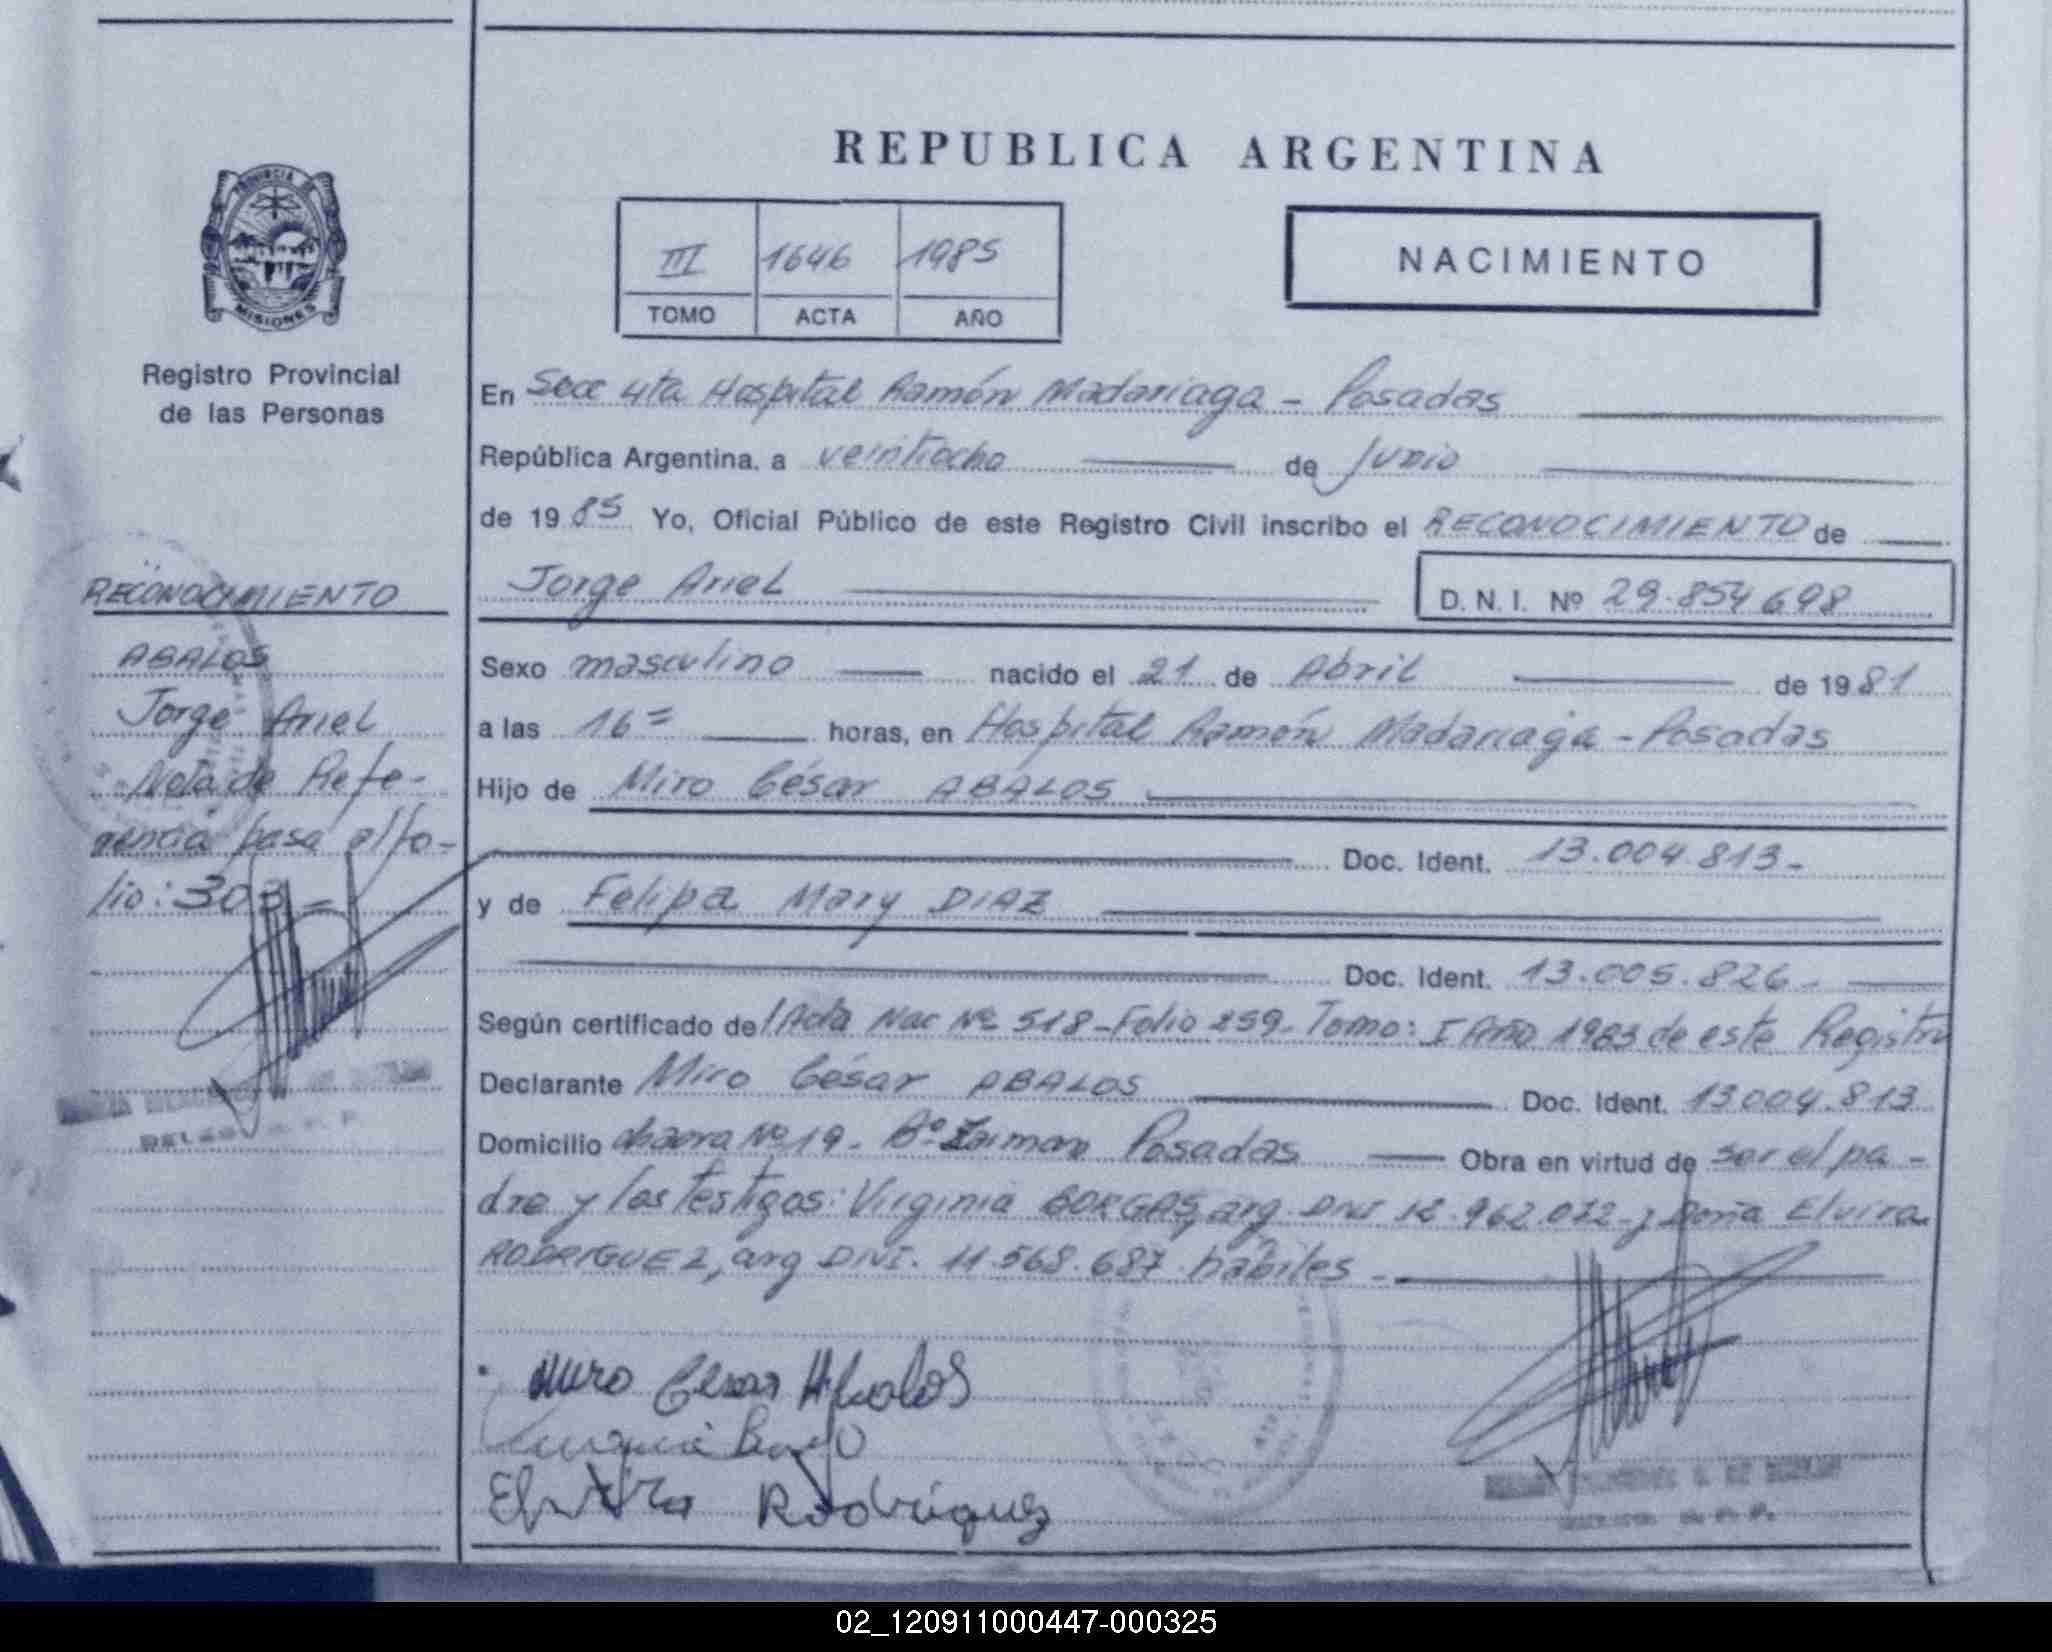 REPUBLICA ARGENTINA
III 1646 1985
TOMO ACTA AÑO
NACIMIENTO
PROVINCIA DE
MISIONES
Registro Provincial
de las Personas
RECONOCIMIENTO
ABALOS
Jorge Ariel
Nota de Refe-
rencia pasa al fo-
lio: 303 =
En Secc 4ta Hospital Ramón Madariaga - Posadas
República Argentina, a veintiocho de Junio
de 19 85 Yo, Oficial Público de este Registro Civil inscribo el RECONOCIMIENTO de
Jorge Ariel D.N.I. Nº 29.854698
Sexo masculino nacido el 21 de Abril de 19 81
a las 16= horas, en Hospital Ramón Madariaga - Posadas
Hijo de Miro César ABALOS
Doc. Ident. 13.004.813-
y de Felipa Mary DIAZ
Doc. Ident. 13.005.826-
Según certificado de Acta Nac Nº 518-Folio 259- Tomo: I Año 1983 de este Registro
Declarante Miro César ABALOS Doc. Ident. 13004.813
Domicilio chacra Nº 19- Bº Posadas Obra en virtud de ser el pa-
dre y los testigos: Virginia BORGAS, arg. DNI 12.962.072-y Doña Elvira
RODRIGUEZ, arg DNI. 11.568.687 hábiles -
Miro Cesar Abalos
Elvira Rodriguez
02_120911000447-000325